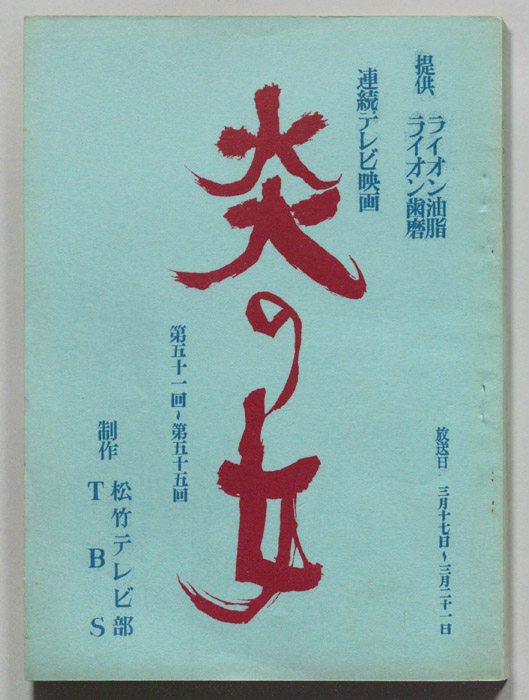 提供、ライオン油脂
ライオン歯磨
連続テレビ映画
炎の女
第五十一回〜第五十五回
放送日 三月十七日〜三月二十一日
制作 松竹テレビ部
TBS